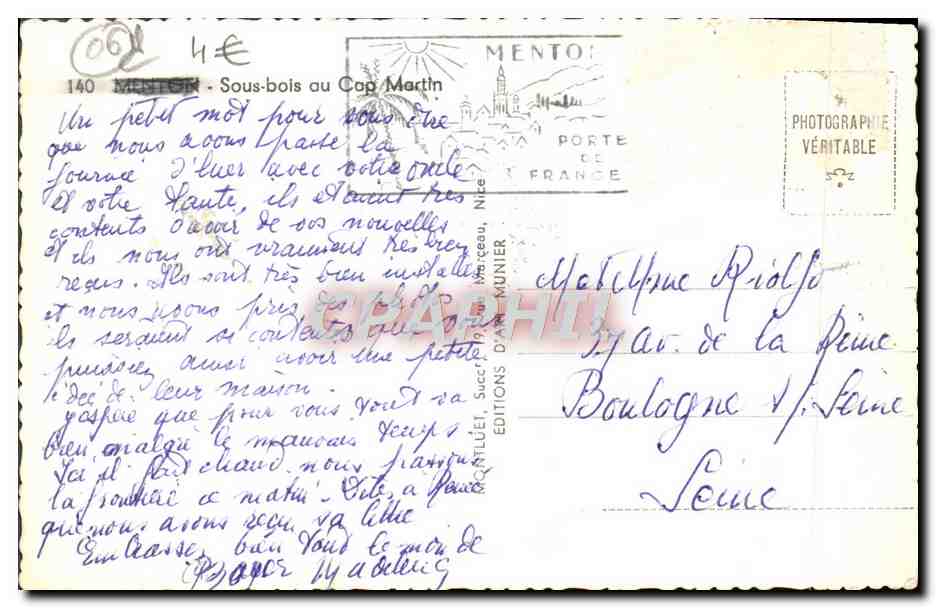 062 4€
140 MENTON - Sous-bois au Cap Martin
MENTON
PORTE
DE
FRANCE
PHOTOGRAPHIE
VÉRITABLE
Un petit mot pour vous dire
que nous avons passé la
journée d'hier avec votre oncle
et votre tante, ils étaient très
contents d'avoir de vos nouvelles
et ils nous ont vraiment très bien
reçus. Ils sont très bien installés
et nous avons pris des photos
ils seraient si contents que vous
puissiez aussi avoir une petite
idée de leur maison.
J'espère que pour vous tout va
bien malgré le mauvais temps
Ici il fait chaud. nous passons
la frontière ce matin. Dites à
que nous avons reçu sa lettre
Embrassez bien tout le monde
MONTLUET, Succr, 19, rue Marceau, Nice
EDITIONS D'ART MUNIER
M et Mme Riolfo
av. de la Reine
Boulogne s/ Seine
Seine
CPAPHIL